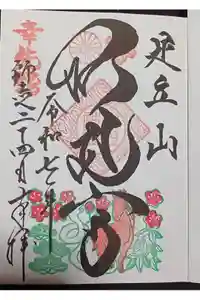 足立山
妙見宮
令和七年
師走二十四日奉拝